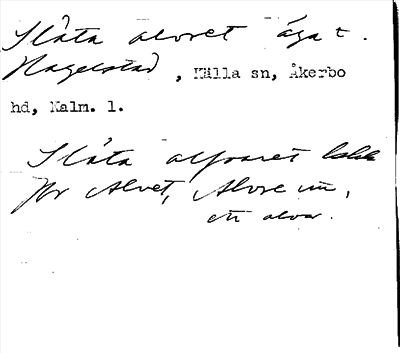 Slåta alvret äga t.
Hagelstad, Källa sn, Åkerbo
hd, Kalm. l.
Slåta alvaret
för Alvet, Alvre un,
ett alvar.